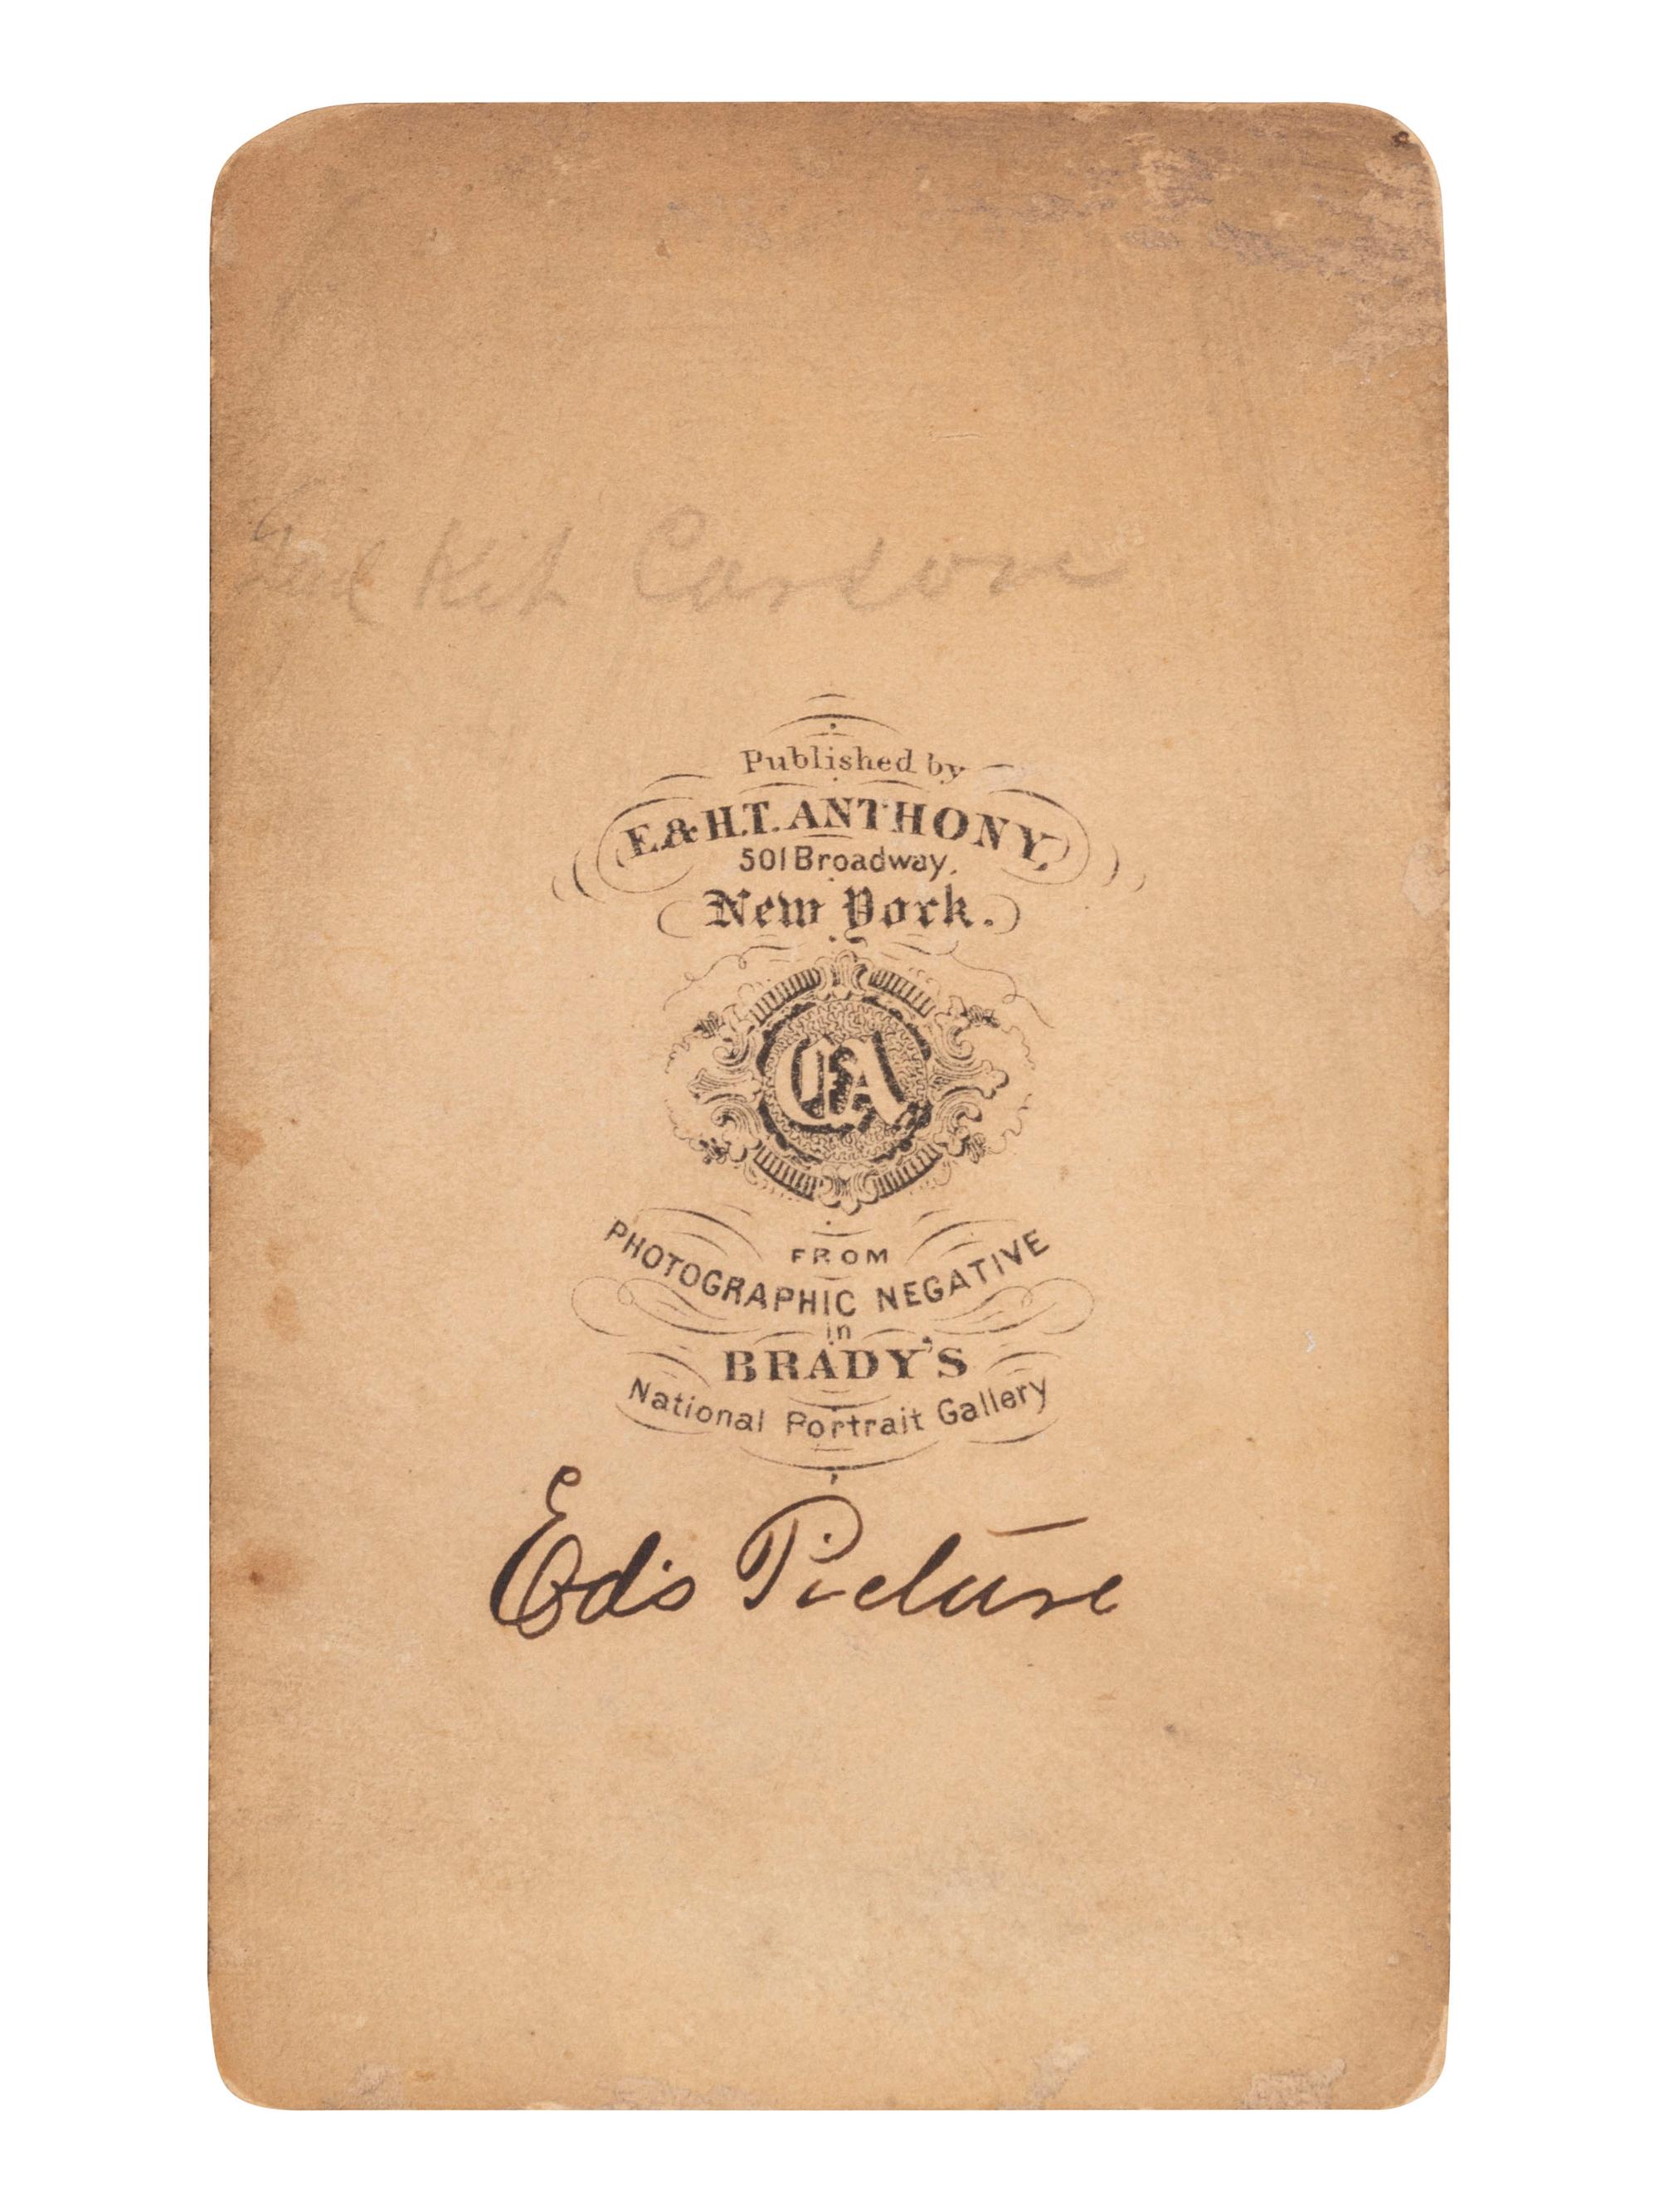 Kit Carson
Published by
E. & H.T. ANTHONY,
501 Broadway,
New York.
EA
FROM
PHOTOGRAPHIC NEGATIVE
in
BRADY'S
National Portrait Gallery
Ed's Picture